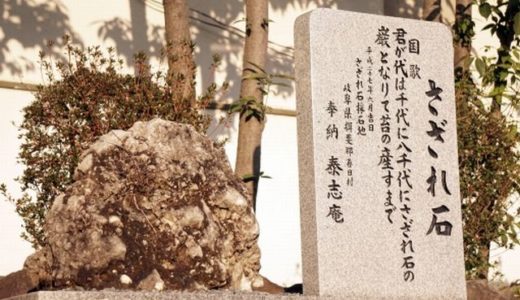 さざれ石
国歌
君が代は千代に八千代にさざれ石の
巌となりて苔の産すまで
平成二七年六月吉日
さざれ石採石地
岐阜県揖斐郡春日村
奉納 泰志庵